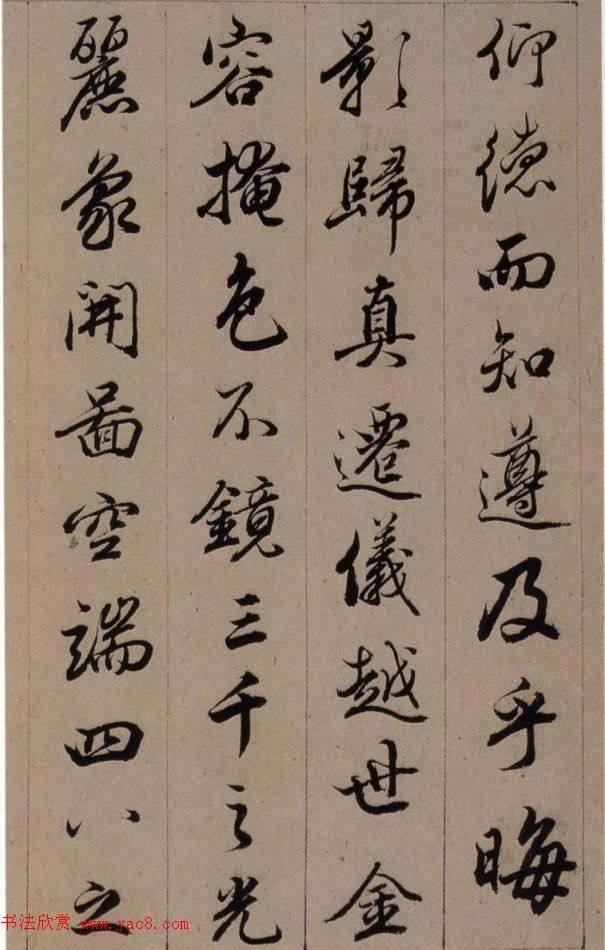 仰德而知遵及乎晦
影歸真遷儀越世金
容掩色不鏡三千之光
麗象開圖空端四八之
书法欣赏 www.yac8.com